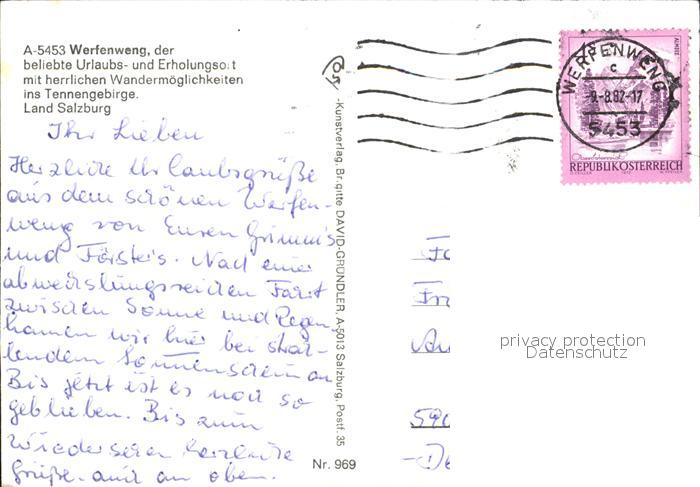 A-5453 Werfenweng, der
beliebte Urlaubs- und Erholungsort
mit herrlichen Wandermöglichkeiten
ins Tennengebirge.
Land Salzburg
Ihr Lieben
Herzliche Urlaubsgrüße
aus dem schönen Werfen-
weng von Euren Grimm's
und Förster's. Nach einer
abwechslungsreichen Fahrt
zwischen Sonne und Regen
kamen wir hier bei strah-
lendem Sonnenschein an
Bis jetzt ist es noch so
geblieben. Bis zum
Wiedersehen herzliche
Grüße. auch an oben.
-Kunstverlag, Brigitte DAVID-GRÜNDLER, A-5013 Salzburg, Postf. 35
Nr. 969
WERFENWENG
c
9.-8.82-17
5453
REPUBLIK ÖSTERREICH
Fr
590
-De
privacy protection
Datenschutz